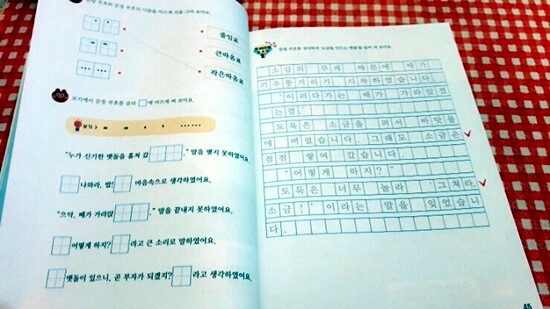 문장 부호와 문장 부호의 이름을 바르게 선을 그어 보아요.
줄임표
큰따옴표
작은따옴표
보기에서 문장 부호를 골라 에 바르게 써 보아요.
보기
"누가 신기한 맷돌을 훔쳐 갔 ." 말을 맺지 못하였어요.
나와라, 밥! 마음속으로 생각하였어요.
"으악, 배가 가라앉 ." 말을 끝내지 못하였어요.
어떻게 하지? 라고 큰 소리로 말하였어요.
맷돌이 있으니, 곧 부자가 되겠지? 라고 생각하였어요.
문장 부호를 생각하며 '소금을 만드는 맷돌'을 옮겨 써 보아요.
소금의 무게 때문에 배가
기우뚱거리기 시작하였습니다.
"이러다가는 배가 가라앉겠
는걸."
도둑은 소금을 퍼서 바닷물
에 버렸습니다. 그래도 소금은
점점 쌓여 갔습니다.
"어떻게 하지?"
도둑은 너무 놀라 '그쳐라,
소금!'이라는 말을 잊었습니
다.
45